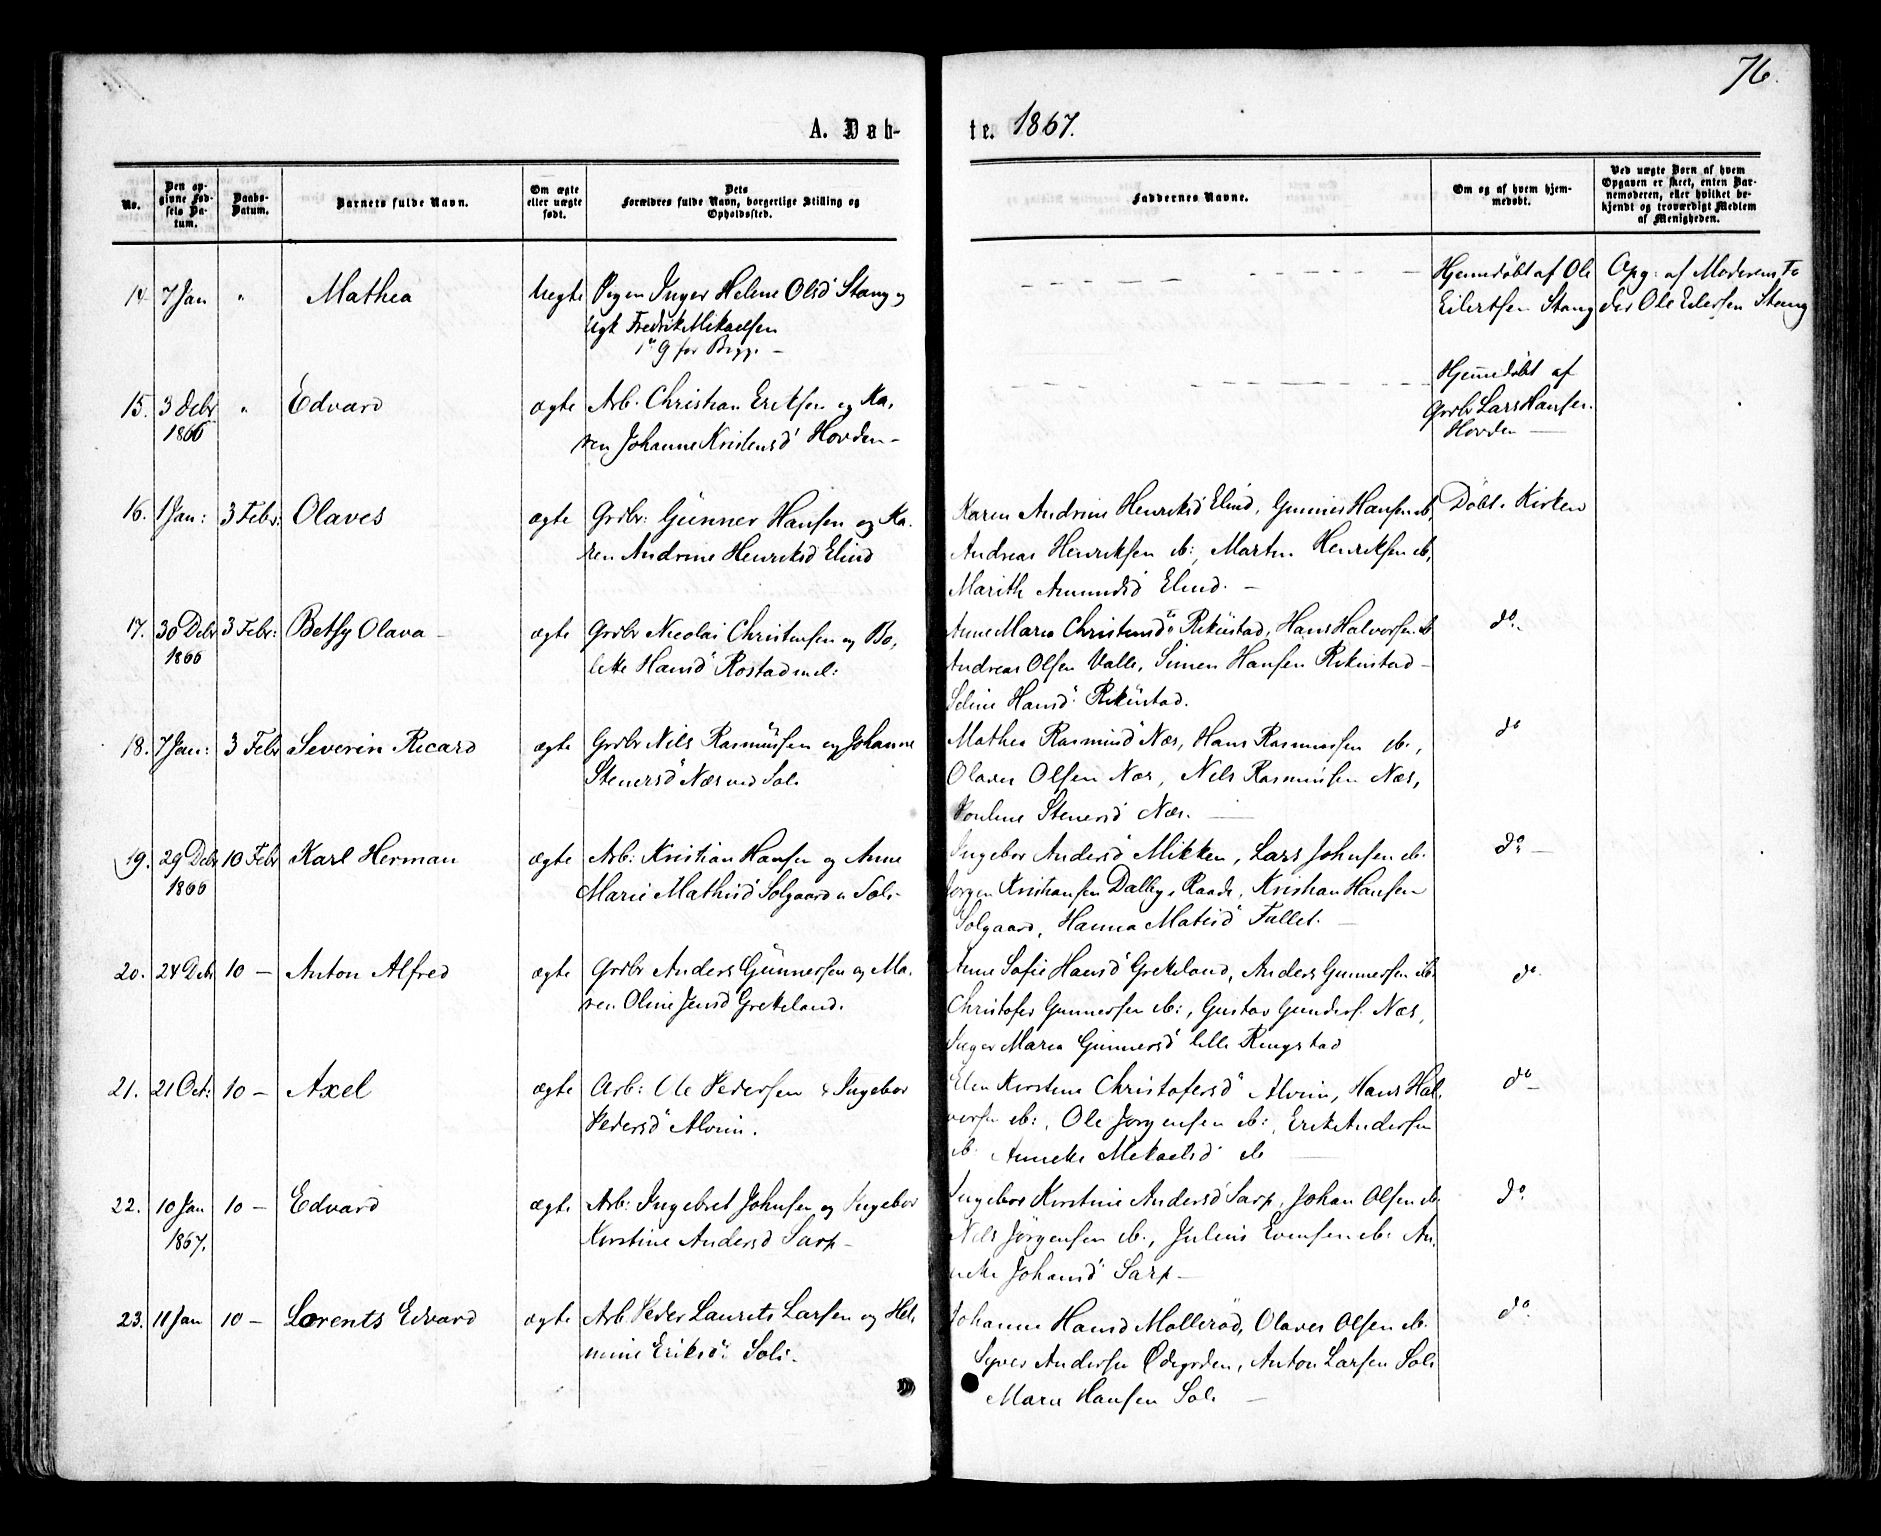 76.
A. Døb-
te. 1867.
No.
Den op-
givne Fød-
sels Da-
tum.
Daabs-
Datum.
Barnets fulde Navn.
Om ægte
eller uægte
født.
Dets
Forældres fulde Navn, borgerlige Stilling og
Opholdssted.
Faddernes Navne.
Om og af hvem hjem-
medøbt.
Ved uægte Børn af hvem
Opgaven er skeet, enten Bar-
nemoderen, eller hvilket be-
kjendt og troværdigt Medlem
af Menigheden.
14 7 Jan " Mathea Uegte Pigen Inger Helene Olsd Stang og
Ugk Fredrik Mikaelsen
1ste G for Begge -
Hjemmedøbt af Ole
Eilertsen Stang
Opg: af Moderens Fa
der Ole Eilersen Stang
15. 3 Debr " Edvard ægte Arb. Christian Eriksen og Ka,
1866 ren Johanne Kristensd Hovden -
Hjemmedøbt af
Grdbr Lars Hansen
Hovden —
16. 1 Jan: 3 Febr: Olaves ægte Grdbr: Günner Hansen og Ka.
ren Andrine Henriksd Elind
Karen Andrine Henriksd Elind, Gunner Hansen ib,
Andreas Henriksen ib:, Martin Henriksen ib,
Marith Amundsd Elind. -
Døbt i Kirken
17. 30 Debr 3 Febr: Betsy Olava - ægte Grdbr Nicolai Christensen og Bo,
1866 lette Hansd Rostad
Anne Maria Christensd Rikustad, Hans Halvorsen ib
Andreas Olsen Valle, Simen Hansen Rikustad -
Seline Hansd Rikustad.
do
18. 7 Jan: 3 Febr Severin Ricard ægte Grdbr Nils Rasmüsen og Johanne
Stenersd Næs ved Soli
Mathea Rasmusd Næs, Hans Rasmussen ib.,
Olaves Olsen Næs, Nils Rasmussen Næs,
Pouline Stenersd Næs. —
do
19. 29 Debr 10 Febr Karl Herman ægte Arb: Kristian Hansen og Anne
1866 Marie Mathisd Solgaard u Soli
Ingebor Andersd Mikken, Lars Johnsen ib.
Jørgen Kristiansen Dalby, Raade, Kristian Hansen
Solgaard, Hanna Matisd Fallet. —
do —
20. 24 Debr 10 — Anton Alfred ægte Grdbr Anders Günnersen og Ma.
ren Oline Jensd Grekeland.
Anne Sofie Hansd Grekeland, Anders Gunnersen ib.
Christofer Gunnersen ib:, Gustav Gunders. Næs,
Inger Maria Günnersd lille Ringstad
do
21. 21 Oct: 10 — Axel ægte Arb: Ole Pedersen & Ingebor
Pedersd Alvim.
Elen Kirstine Christofersd Alvim, Hans Hal.
vorsen ib:, Ole Jørgensen ib:, Erik Andersen
ib. Annette Mikaelsd ib —
do —
22. 10 Jan 10 — Edvard ægte Arb: Ingebret Johnsen og Ingebor
1867. Kirstine Andersd Sarp —
Ingebor Kirstine Andersd Sarp, Johan Olsen ib
Nils Jörgensen ib., Julius Evensen ib. An,
nette Johansd Sarp —
do
23. 11 Jan 10 — Lorents Edvard ægte Arb. Peder Laurits Larsen og Hel,
mine Eriksd. Soli.
Johanne Hansd Mølleröd, Olaves Olsen ib.
Syver Andersen Ödegrden, Anton Larsen Soli
Maria Hansen Soli —
do